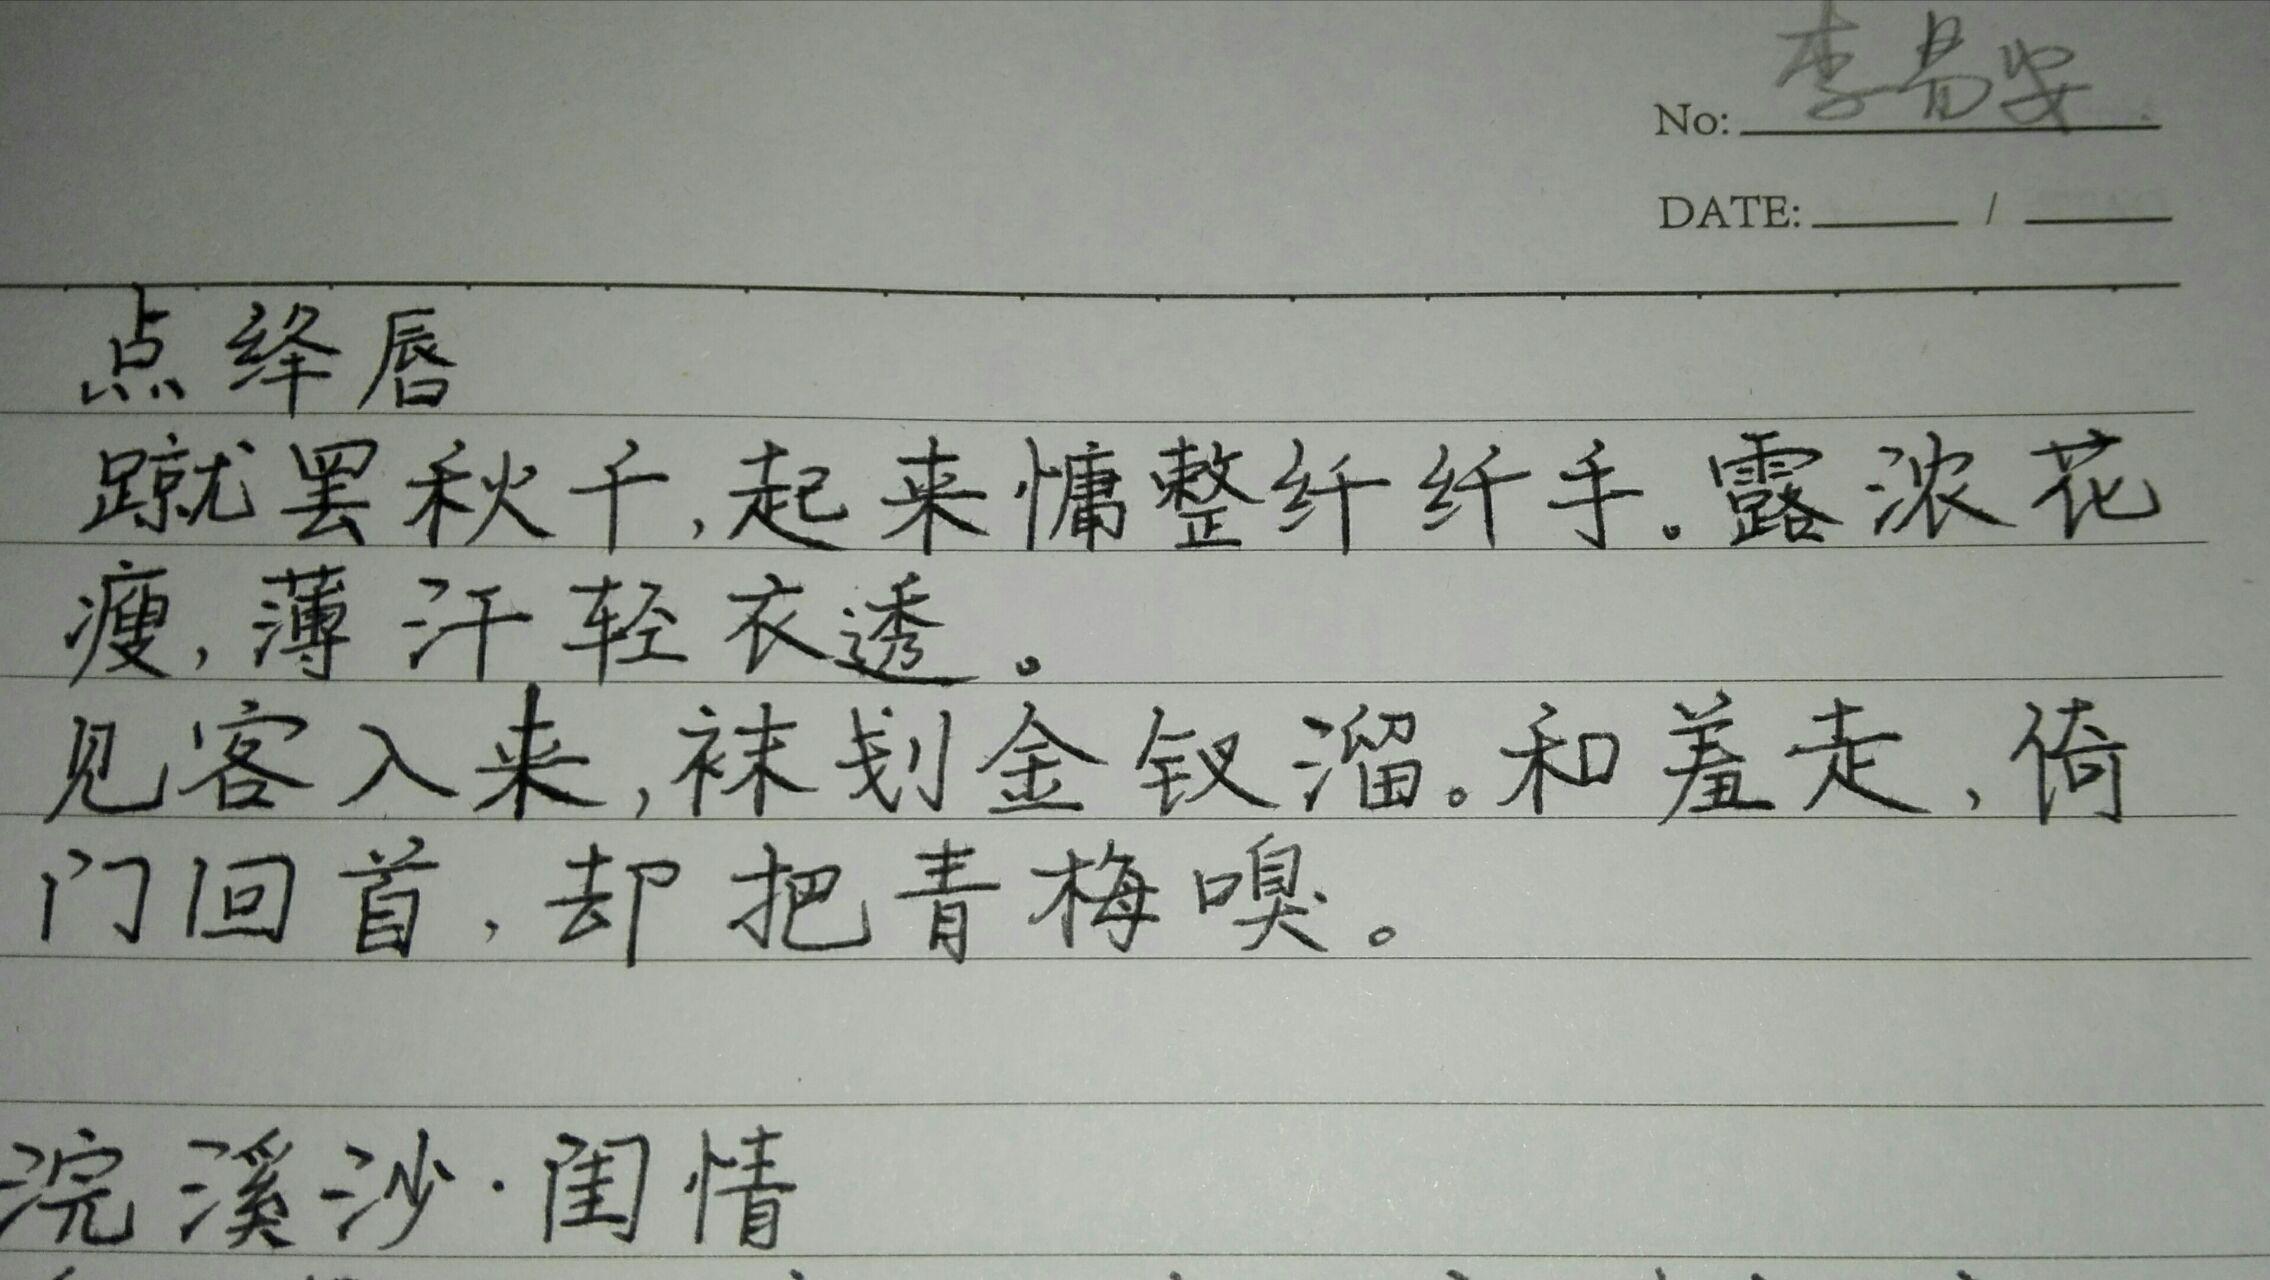 李易安
No:
DATE: /
点绛唇
蹴罢秋千,起来慵整纤纤手。露浓花
瘦,薄汗轻衣透。
见客入来,袜刬金钗溜。和羞走,倚
门回首,却把青梅嗅。
浣溪沙·闺情